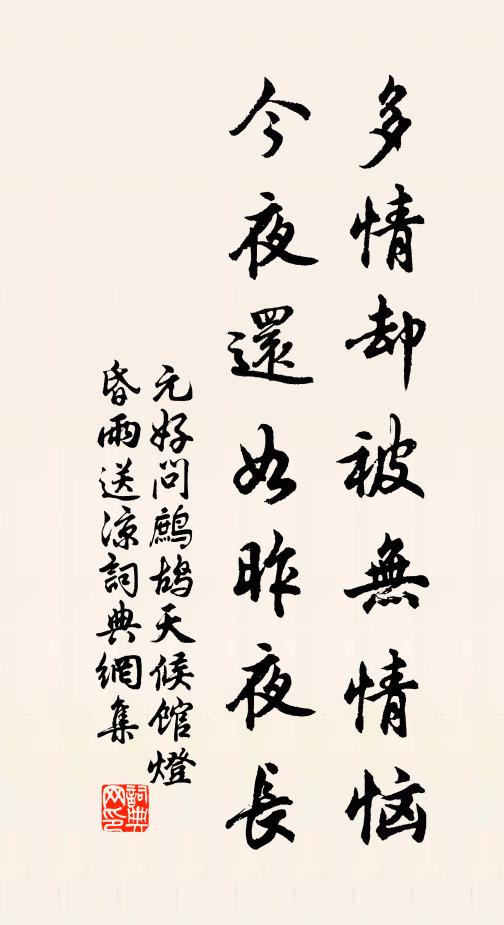 多情却被無情恼
今夜還如昨夜長
元好问鹧鸪天候館燈
昏雨送涼詞典網集
詞典网印